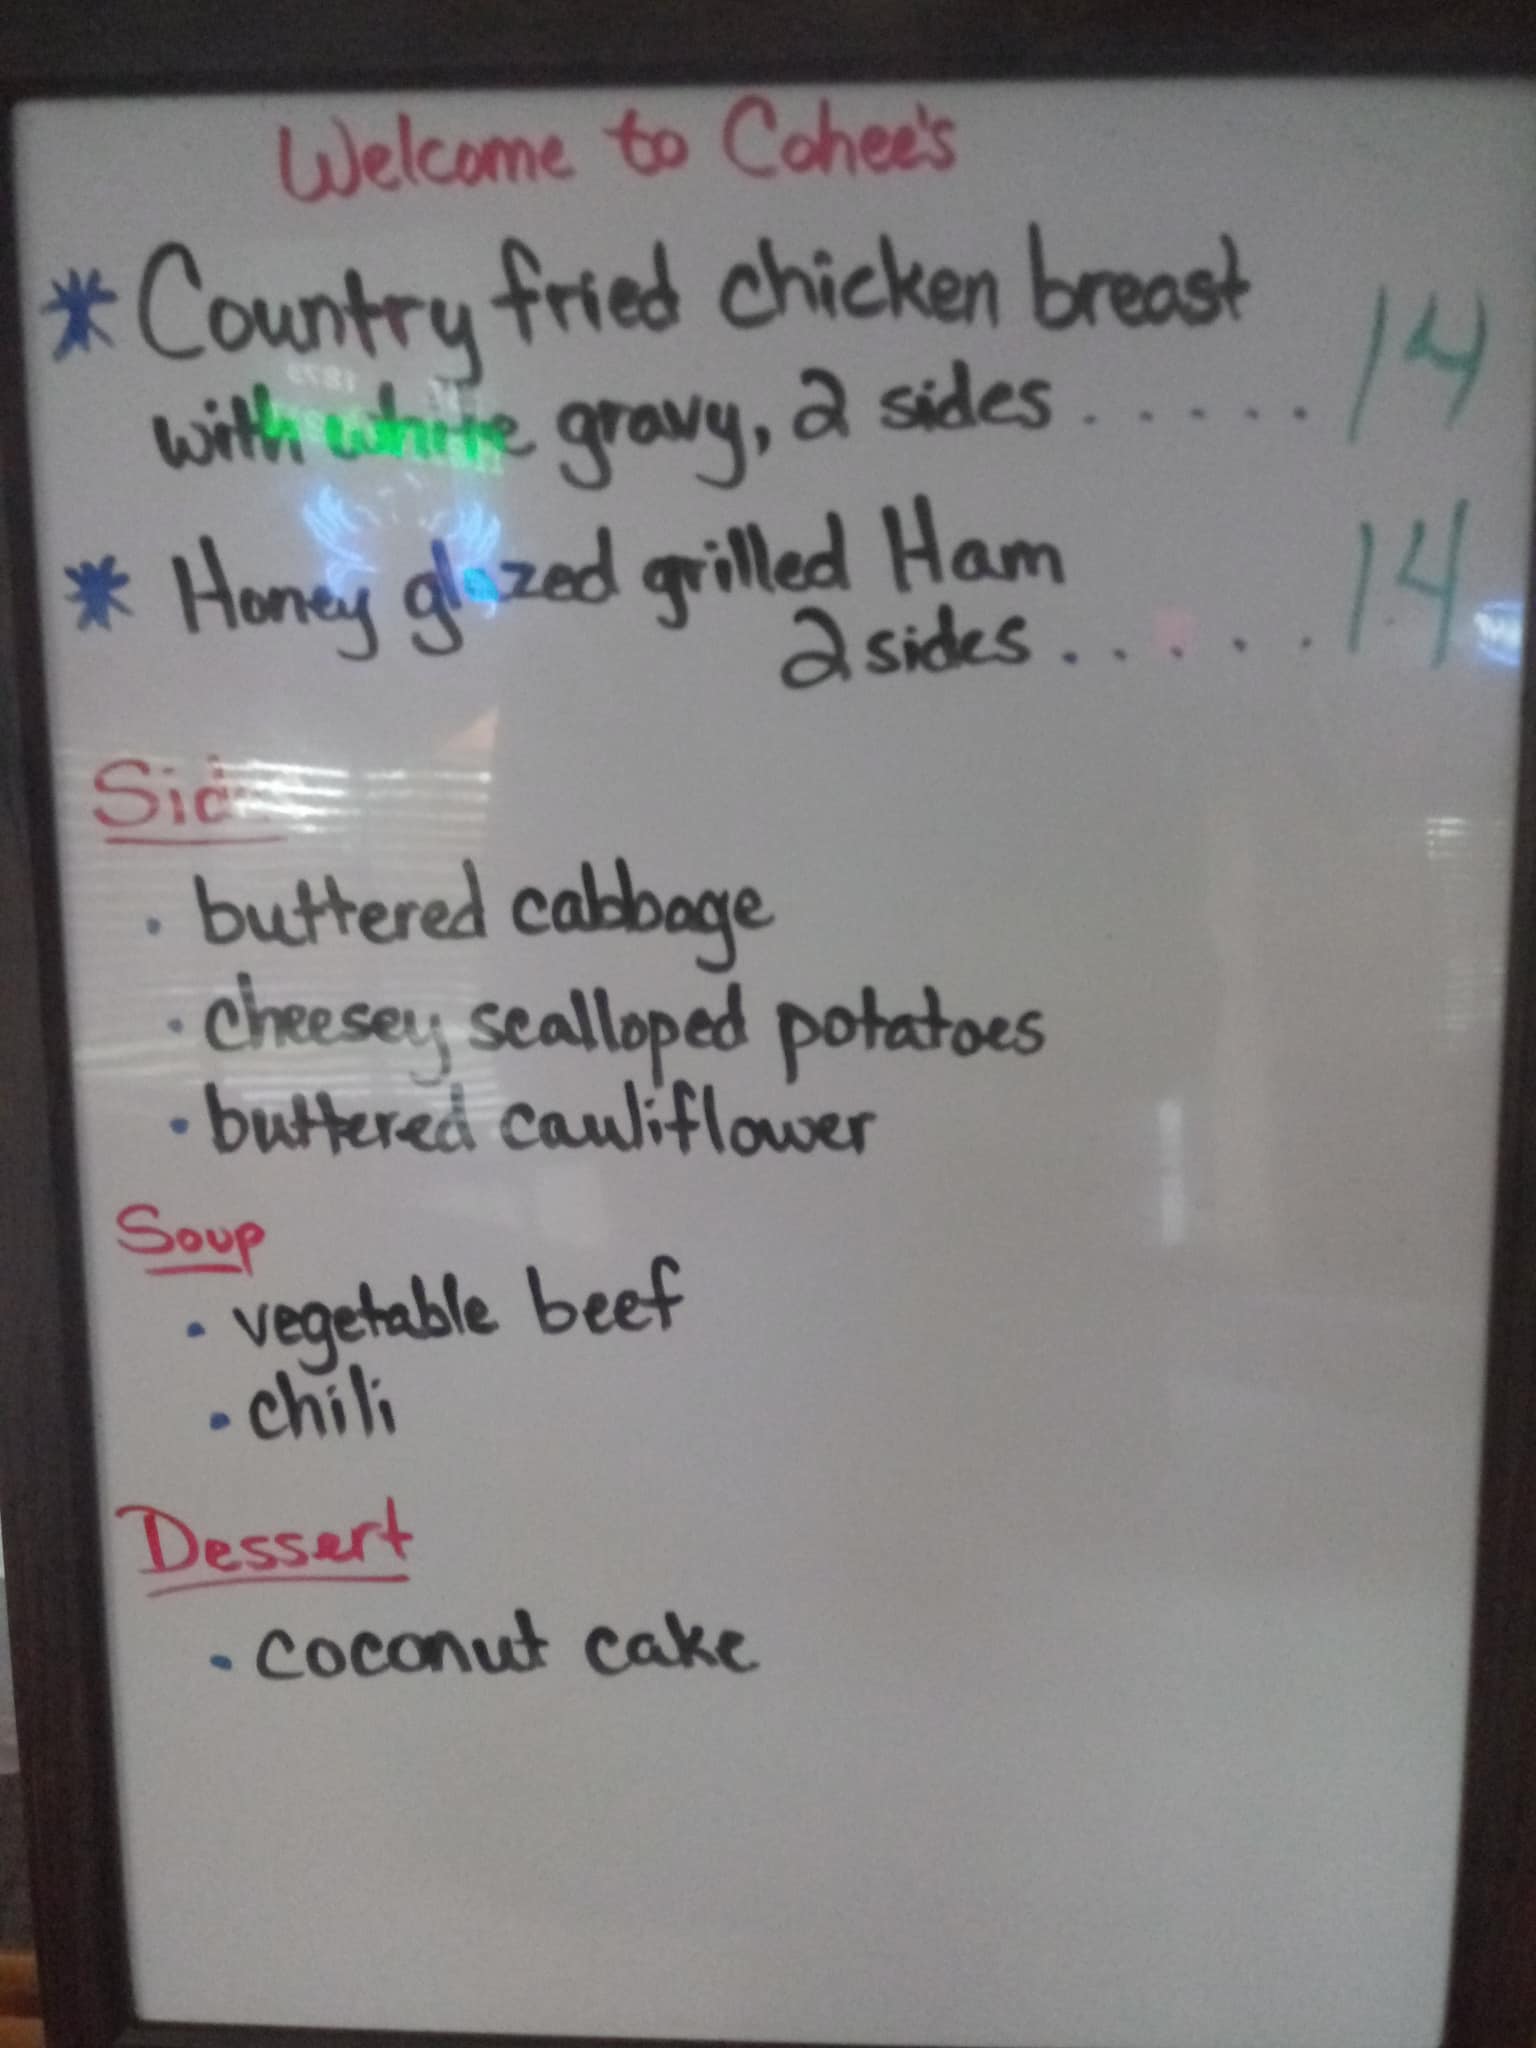 Welcome to Cohee's
* Country fried chicken breast
with white gravy, 2 sides ..... 14
* Honey glazed grilled Ham
2 sides ..... 14
• buttered cabbage
• cheesey scalloped potatoes
• buttered cauliflower
Soup
• vegetable beef
• chili
Dessert
• coconut cake